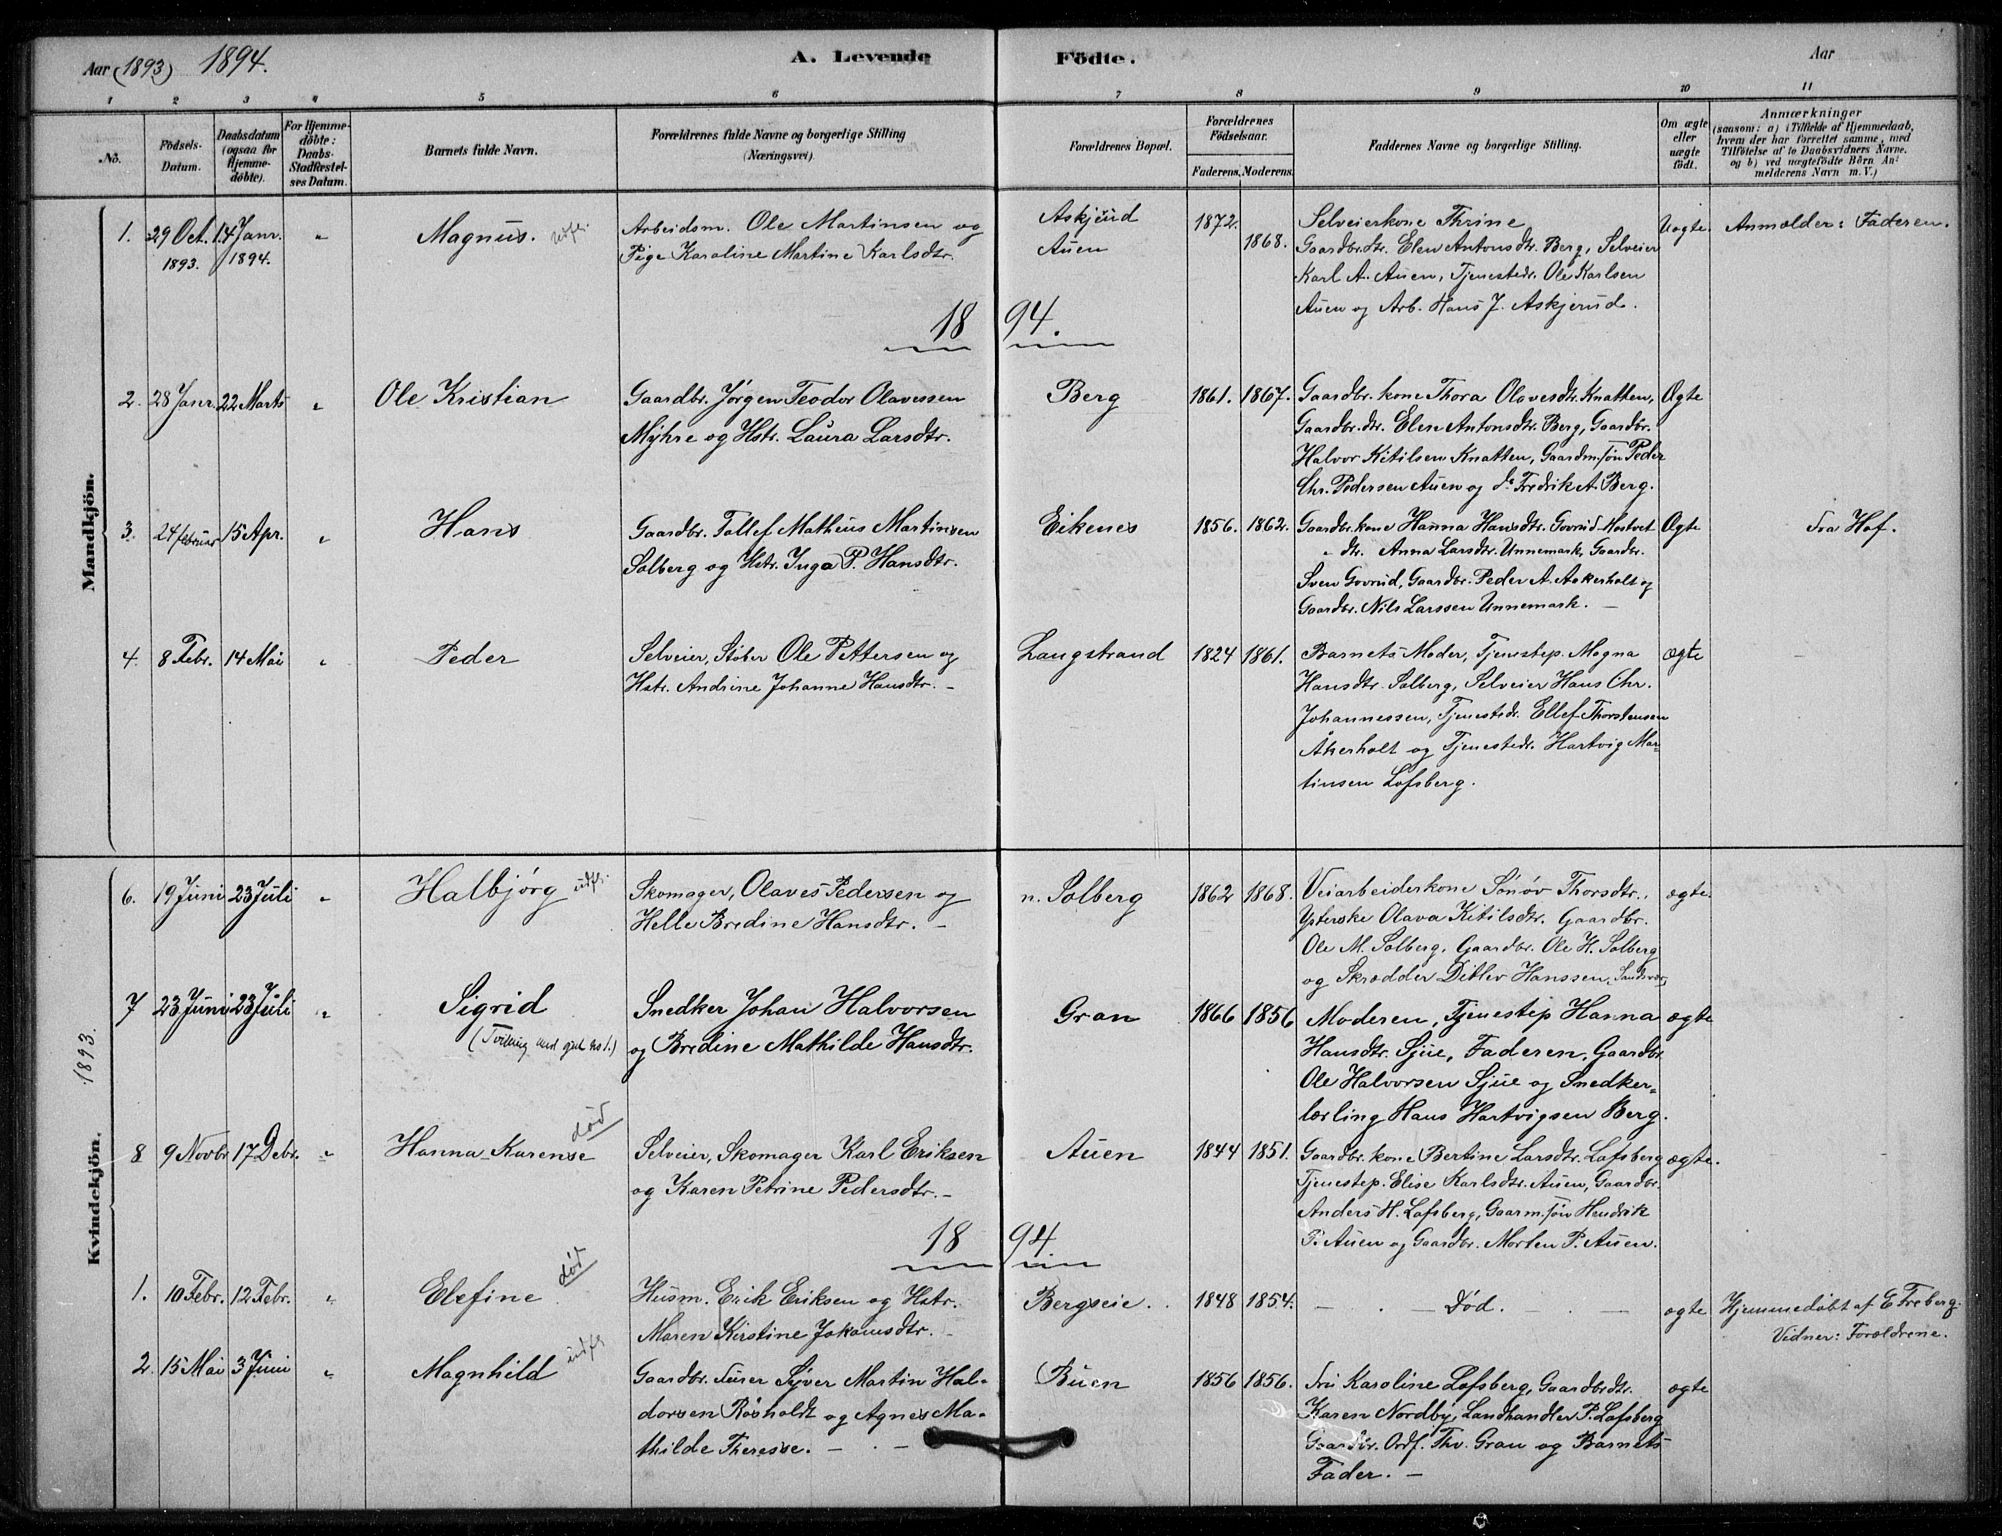 Aar (1893) 1894. A. Levende Födte. Aar
1 2 3 4 5 6 7 8 9 10 11
No.
Födsels-Datum.
Daabsdatum (ogsaa for Hjemmedöbte).
For Hjemmedöbte: Daabs-Stadfæstelses Datum.
Barnets fulde Navn.
Forældrenes fulde Navne og borgerlige Stilling
(Næringsvei)
Forældrenes Bopæl.
Forældrenes Födselsaar.
Faderens. Moderens.
Faddernes Navne og borgerlige Stilling.
Om ægte eller uægte födt.
Anmærkninger
(saasom: a) i Tilfælde af Hjemmedaab,
hvem der har forrettet samme, med
Tilföielse af to Daabsvidners Navne.
og b) ved uægtefödte Börn An-
melderens Navn m. V.)
Mandkjön.
1. 29 Oct. 1893. 14 Janr. 1894. " Magnus. udfl.
Arbeidsm. Ole Martinsen og
Pige Karoline Martine Karlsdtr.
Askjerud
Auen
1872. 1868.
Selveierkone Thrine
Gaardbr.dtr. Elen Antonsdtr. Berg, Selveier
Karl A. Auen, Tjenestedr. Ole Karlsen
Auen og Arb. Hans J. Askjerud.
Uægte. Anmelder: Faderen.
18 94.
2. 28 Janr. 22 Marts " Ole Kristian
Gaardbr. Jörgen Teodor Olavessen
Myhre og Hstr. Laura Larsdtr.
Berg 1861. 1867.
Gaardbr. kone Thora Olavesdtr. Knatten,
Gaardbr.dtr. Elen Antonsdtr. Berg, Gaardbr.
Halvor Kitilsen Knatten, Gaardm.sön Peder
Chr. Pedersen Auen og do Fredrik A. Berg.
Ægte
3. 24 februar 15 Apr. " Hans
Gaardbr. Tollef Matheus Martinsen
Solberg og Hstr. Inga P. Hansdtr.
Eikenes 1856. 1862.
Gaardbr.kone Hanna Hansdtr. Govrud
" dtr. Anna Larsdtr. Unnemark, Gaardbr.
Sven Govrud, Gaardbr. Peder A. Askerholt og
Gaardbr. Nils Larssen Unnemark. —
Ægte Fra Hof.
4. 8 Febr. 14 Mai " Peder
Selveier, Støber Ole Pettersen og
Hstr. Andrine Johanne Hansdtr. —
Langstrand 1824 1861.
Barnets Moder, Tjenestep. Magna
Hansdtr. Solberg, Selveier Hans Chr.
Johannessen, Tjenestedr. Ellef Thorstensen
Åkerholt og Tjenestedr. Hartvig Mar-
tinsen Lofsberg.
ægte
Kvindekjön. 1893.
6. 19 Juni 23 Juli " Halbjørg udfl.
Skomager, Olaves Pedersen og
Helle Bredine Hansdtr. —
n. Solberg 1862 1868.
Veiarbeiderkone Sønøv Thorsdtr.,
Ysterske Olava Kitilsdtr. Gaardbr.
Ole M. Solberg, Gaardbr. Ole H. Solberg
og Skrædder Ditlev Hanssen,
ægte.
7 23 Juni 23 Juli " Sigrid
(Tvilling med gut no 1.)
Snedker Johan Halvorsen
og Bredine Mathilde Hansdtr.
Gran 1866 1856
Moderen, Tjenestep Hanna
Hansdtr. Sjue, Faderen, Gaardbr.
Ole Halvorsen Sjue og Snedker-
lærling Hans Hartvigsen Berg.
ægte
8 9 Novbr 17 Debr. " Hanna Karense død
Selveier, Skomager Karl Eriksen
og Karen Petrine Pedersdtr. —
Auen 1844 1851.
Gaardbr. kone Bertine Larsdtr. Lofsberg
Tjenestep. Elise Karlsdtr. Auen, Gaardbr.
Anders H. Lofsberg, Gaarm.søn Hendrik
P. Auen og Gaardbr. Morten P. Auen.
ægte.
18 94.
1. 10 Febr. 12 Febr. " Elefine død
Husm. Erik Eriksen og Hstr.
Maren Kirstine Johansdtr. —
Bergseie. 1848 1854.
— Død. —
ægte
Hjemmedøbt af E Freberg.
Vidner: Forældrene.
2. 15 Mai 3 Juni " Magnhild udfl
Gaardbr. Furer Syver Martin Hal-
dorsen Røsholdt og Agnes Ma-
thilde Therese. —
Buen 1856 1856.
Fru Karoline Lofsberg, Gaardbr.dtr.
Karen Nordby, Landhandler P. Lofsberg
Gaardbr. Ordf. Thv. Gran og Barnets
Fader. —
ægte